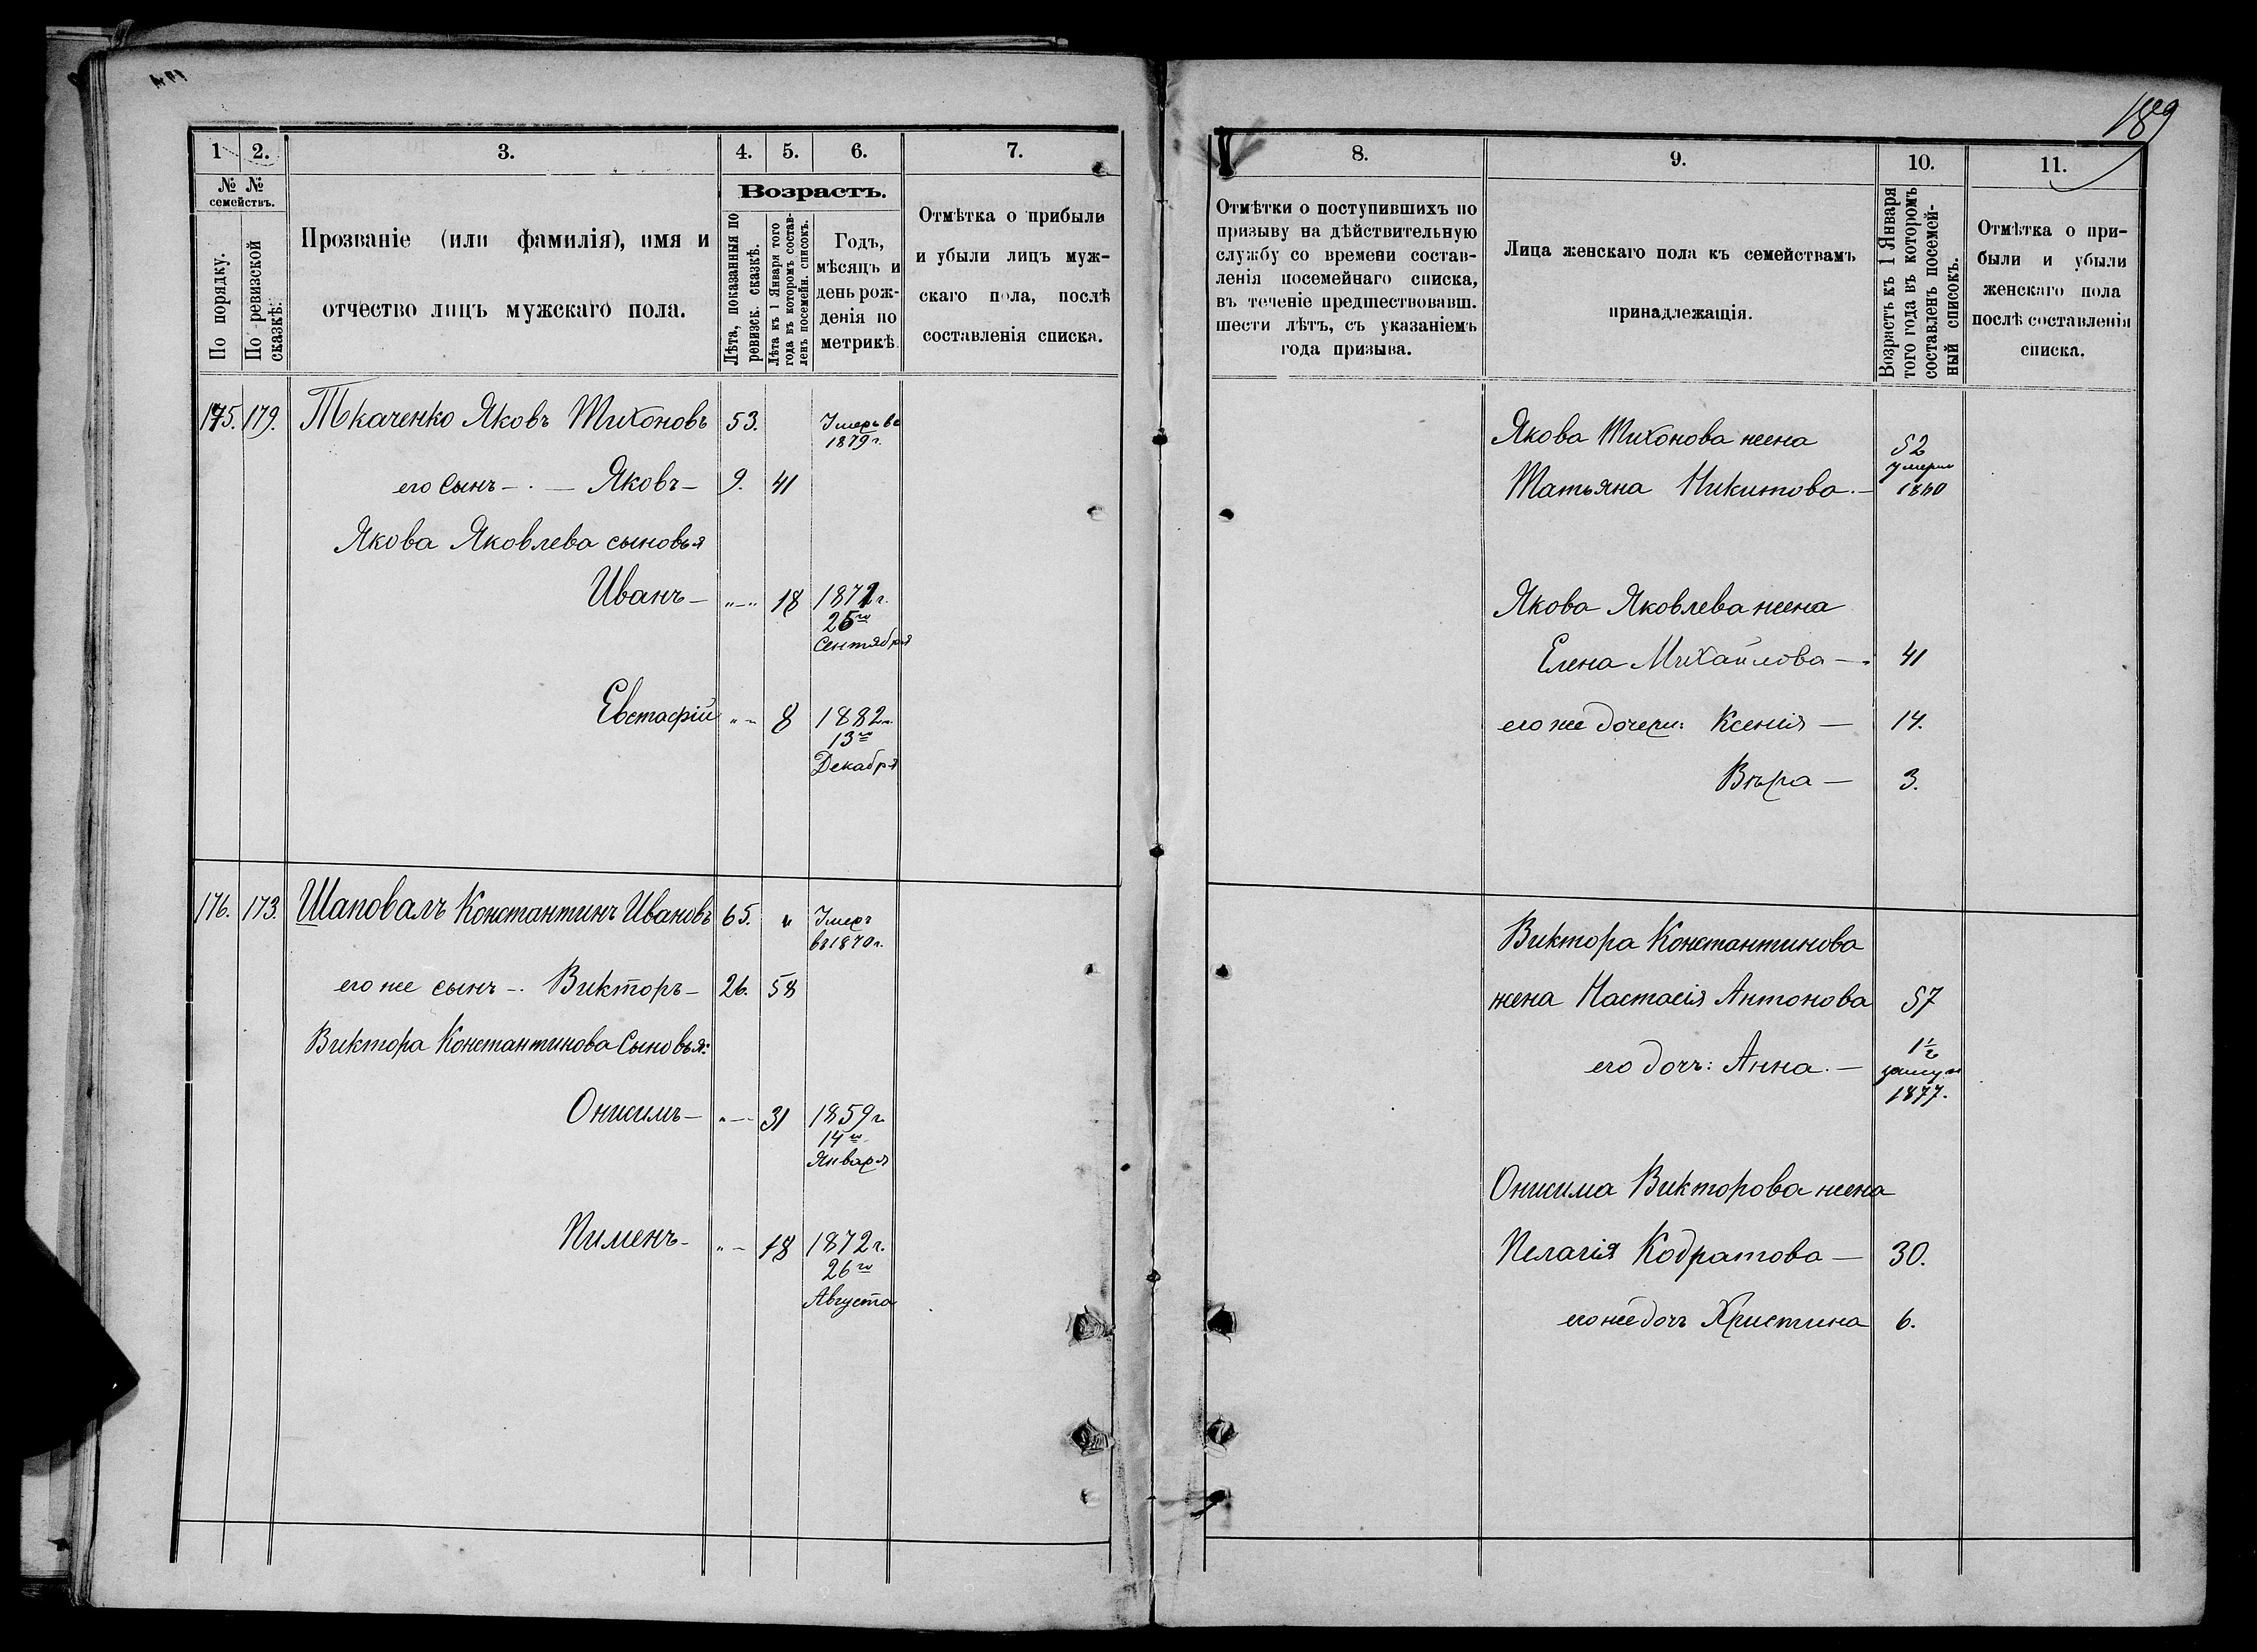 189
1 2. 3. 4. 5. 6. 7.
№ № семействъ.
По порядку.
По ревизской сказкѣ.
Прозваніе (или фамилія), имя и
отчество лицъ мужскаго пола.
Возрастъ.
Лѣта, показанныя по
ревизск. сказкѣ.
Лѣта къ 1 Января того
года въ которомъ состав-
ленъ посемейн. списокъ.
Годъ,
мѣсяцъ и
день рож-
денія по
метрикѣ
Отмѣтка о прибыли
и убыли лицъ муж-
скаго пола, послѣ
составленія списка.
175. 179. Ткаченко Яковъ Тихоновъ 53. Умеръ въ
1879 г.
его сынъ — Яковъ — 9. 41
Якова Яковлева сыновья
Иванъ — „—„ 18 1871 г.
25го
Сентября
Евстафій „— 8 1882 г.
13го
Декабря
176. 173. Шаповалъ Константинъ Ивановъ 65. „ Умеръ
въ 1870 г.
его же сынъ —. Викторъ — 26. 58
Виктора Константинова Сыновья:
Онисимъ — „— 31 1859 г.
14го
Января
Пименъ — „— 18 1872 г.
26го
Августа
8. 9. 10. 11.
Отмѣтки о поступившихъ по
призыву на дѣйствительную
службу со времени состав-
ленія посемейнаго списка,
въ теченіе предшествовавш.
шести лѣтъ, съ указаніемъ
года призыва.
Лица женскаго пола къ семействамъ
принадлежащія.
Возрастъ къ 1 Января
того года въ которомъ
составленъ посемей-
ный списокъ.
Отмѣтка о при-
были и убыли
женскаго пола
послѣ составленія
списка.
Якова Тихонова жена 52
Татьяна Никитова. — умерла
1860
Якова Яковлева жена
Елена Михайлова —. 41
его же дочери: Ксенія — 14.
Вѣра — 3.
Виктора Константинова
жена Настасія Антонова 57
его дочъ: Анна. — 1½
замуж
1877.
Онисима Викторова жена
Пелагія Кодратова — 30.
его же дочъ Христина 6.